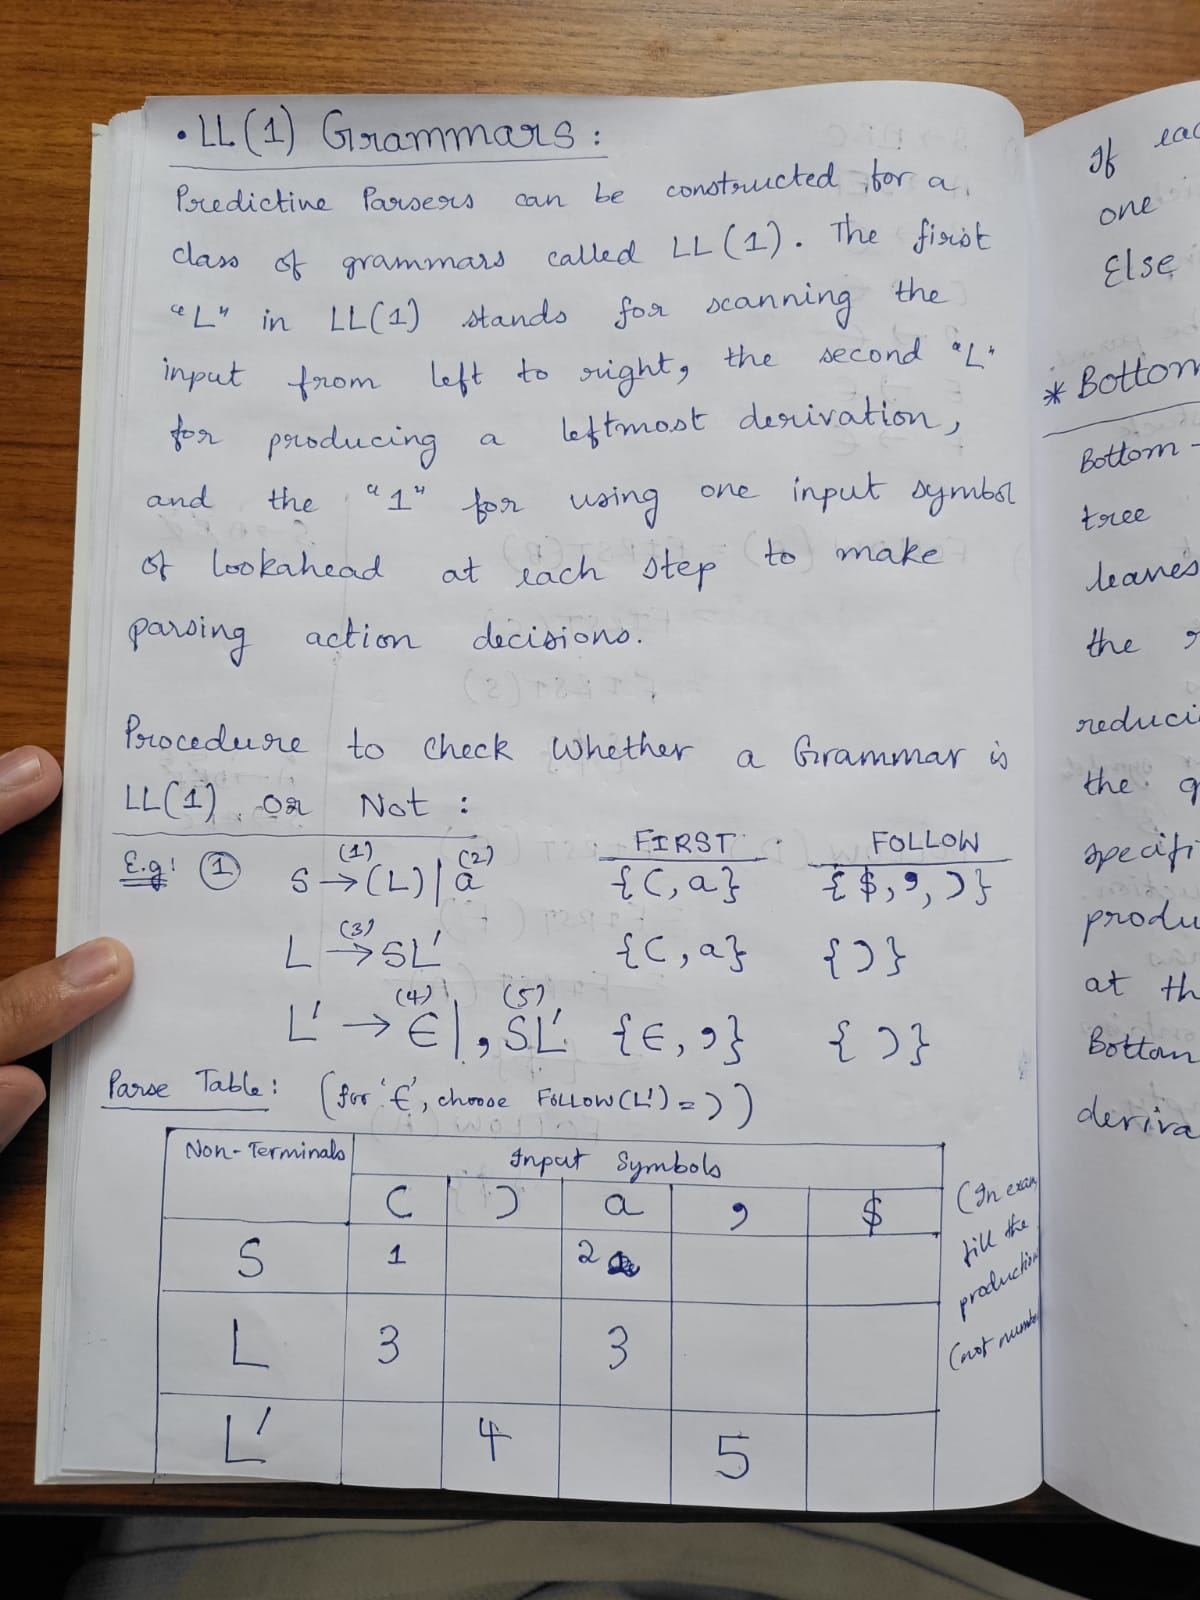 • LL(1) Grammars :
Predictive Parsers can be constructed for a
class of grammars called LL(1). The first
"L" in LL(1) stands for scanning the
input from left to right, the second "L"
for producing a leftmost derivation,
and the "1" for using one input symbol
of lookahead at each step to make
parsing action decisions.
Procedure to check whether a Grammar is
LL(1) or Not :
FIRST FOLLOW
E.g: ① S →(1) (L) | a(2) {(, a} {$, ,, )}
L →(3) SL' {(, a} {)}
L' → ∈(4) | , SL'(5) {∈, ,} { )}
Parse Table : (for '∈', choose FOLLOW(L') = ) )
Non-Terminals Input Symbols
( ) a , $
S 1 2
L 3 3
L' 4 5
(In exam
fill the
production
(not numbe
If eac
one
Else
* Bottom
Bottom -
tree
leaves
the
reduci
the
specifi
produ
at th
Bottom
deriva